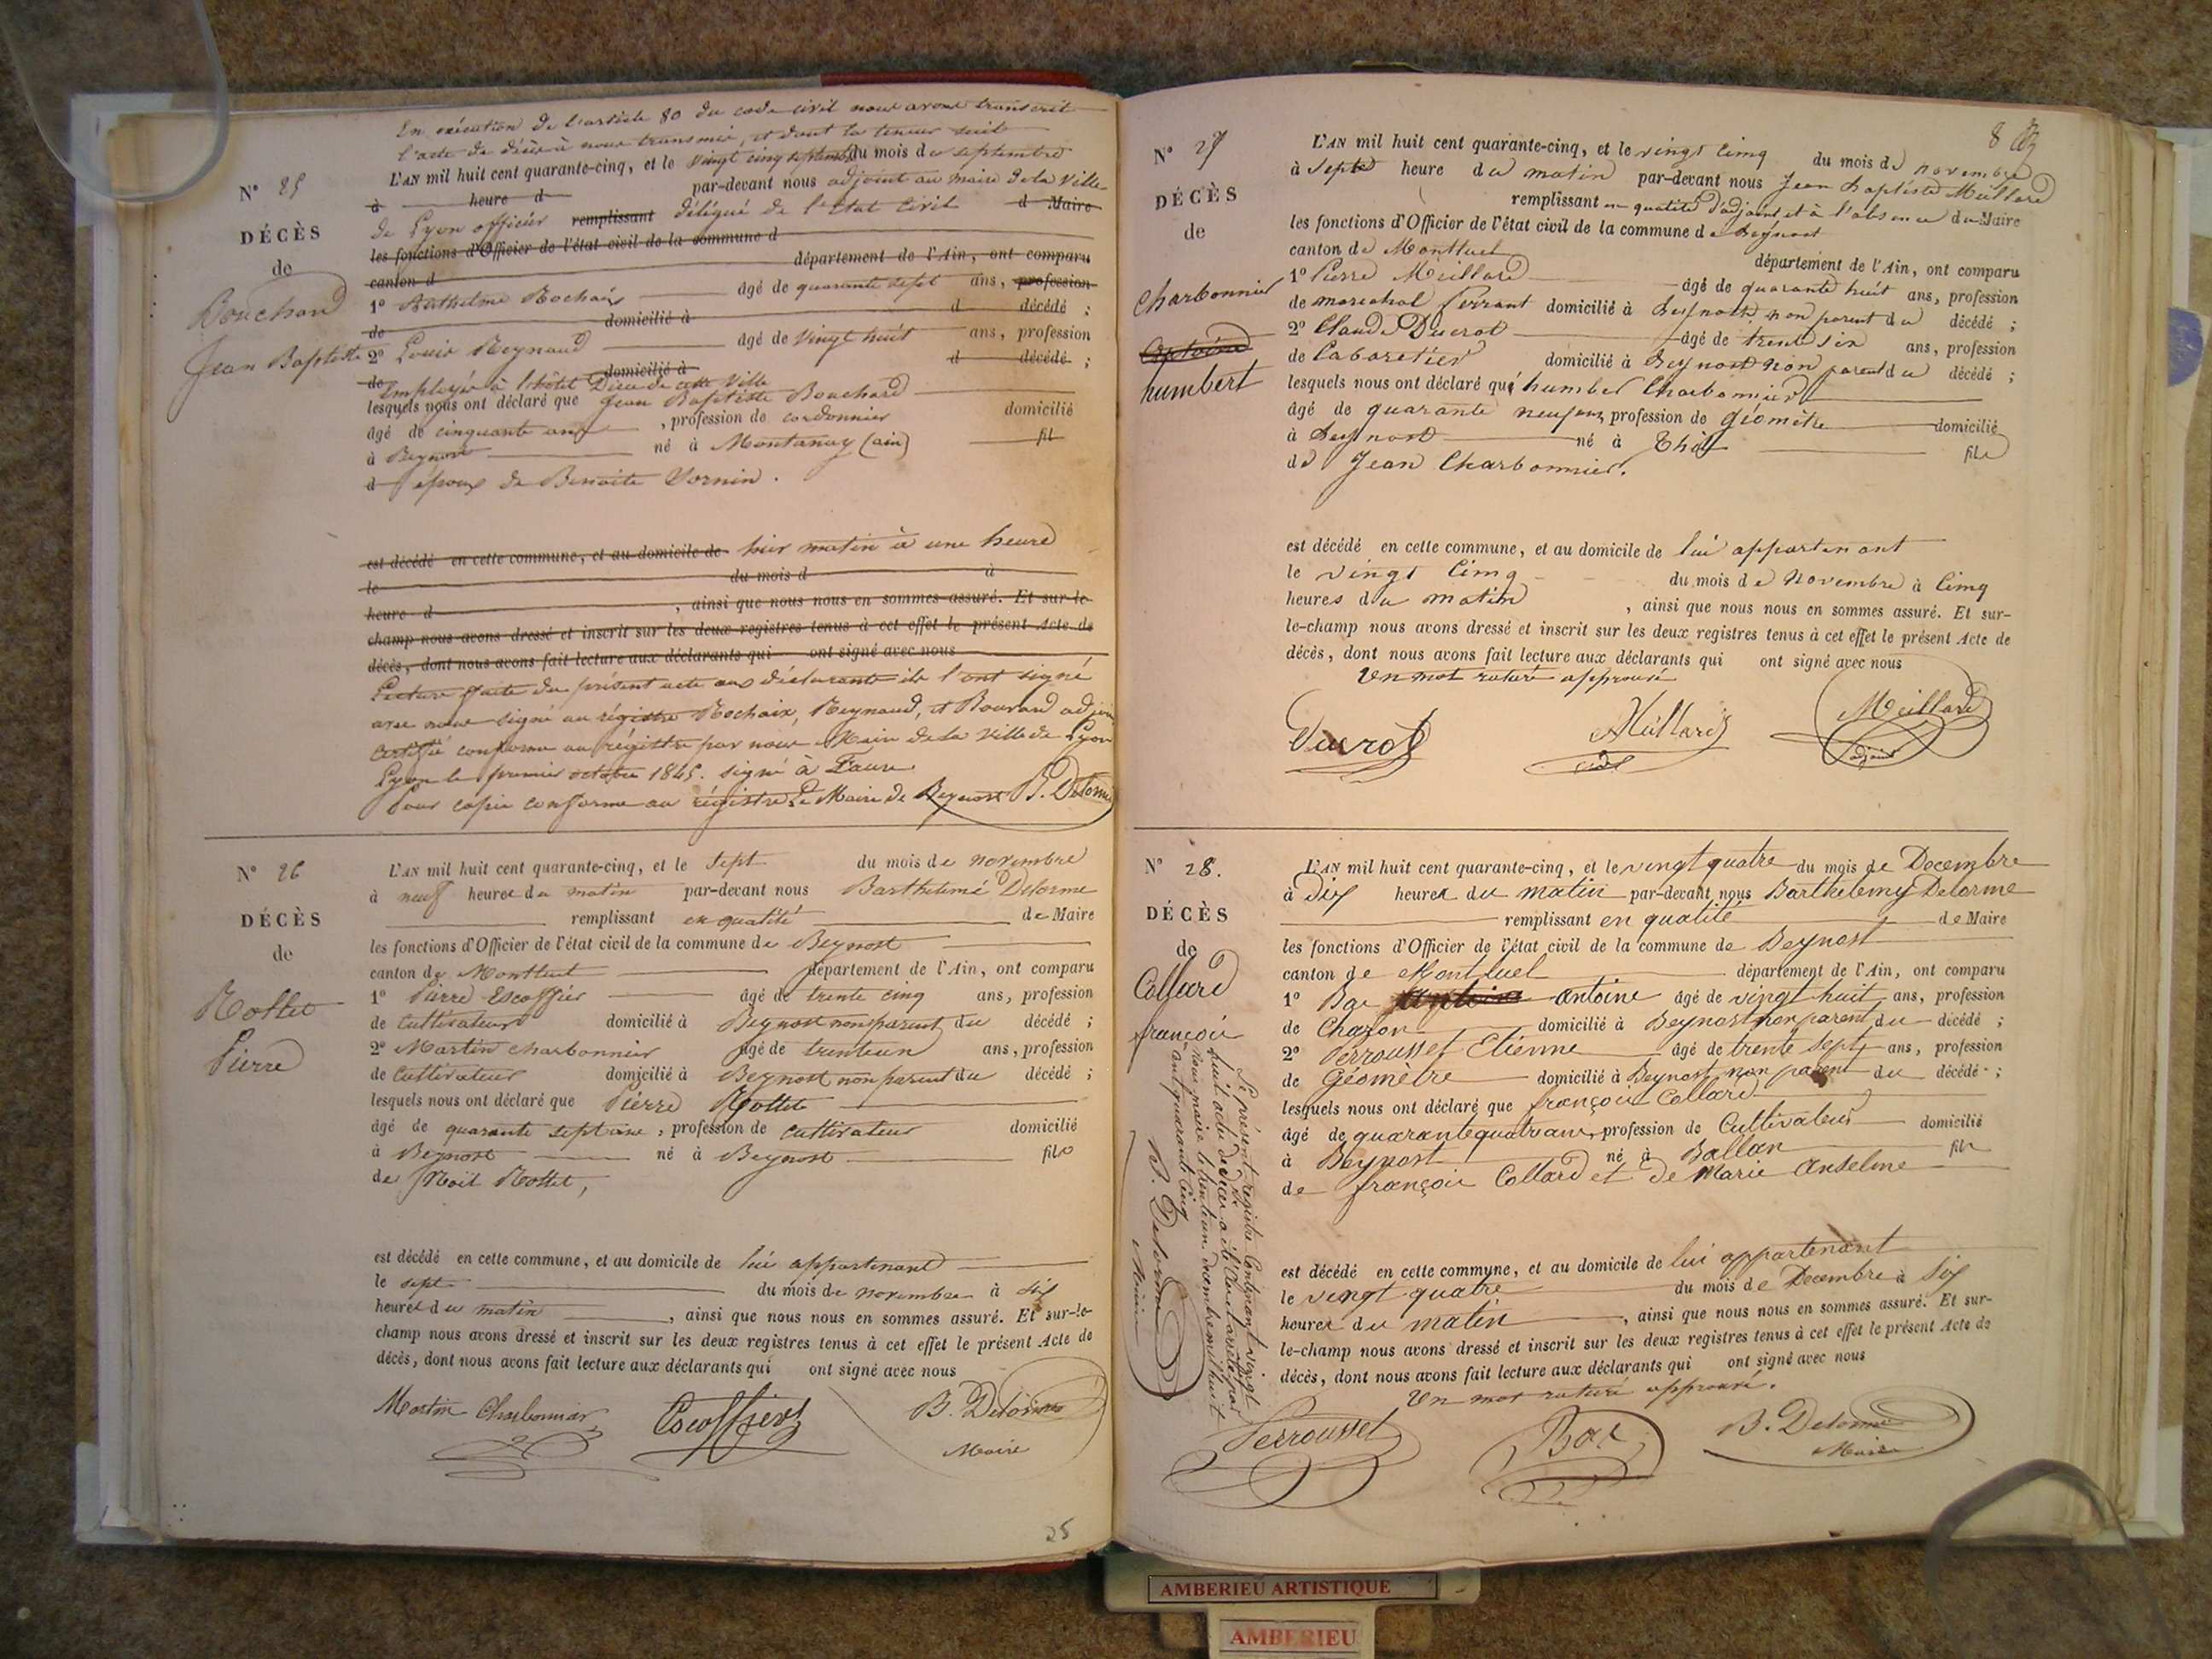 En exécution de l'article 80 du code civil nous avons transcrit
l'acte de décès à nous transmis, et dont la teneur suit
N° 25
DÉCÈS
de
Bouchard
Jean Baptiste
L'AN mil huit cent quarante-cinq, et le vingt cinq septembre du mois de septembre
à heure d par-devant nous adjoint au maire de la ville
de Lyon officier remplissant délégué de l'état civil d Maire
les fonctions d'Officier de l'état civil de la commune d
canton d département de l'Ain, ont comparu
1° Anthelme Rochaix âgé de quarante sept ans, profession
de domicilié à d décédé ;
2° Louis Reynaud âgé de vingt huit ans, profession
de domicilié à d décédé ;
employés à l'hôtel Dieu de cette ville
lesquels nous ont déclaré que Jean Baptiste Bouchard
âgé de cinquante ans , profession de cordonnier domicilié
à Beynost né à Montanay (ain) fil
d époux de Benoite Vornin.
est décédé en cette commune, et au domicile de hier matin à une heure
le du mois d à
heure d , ainsi que nous nous en sommes assuré. Et sur-le-
champ nous avons dressé et inscrit sur les deux registres tenus à cet effet le présent Acte de
décès, dont nous avons fait lecture aux déclarants qui ont signé avec nous
Lecture faite du présent acte aux déclarants ils l'ont signé
avec nous signé au régistre Rochaix, Reynaud, et adjoint
Certifié conforme au régistre par nous Maire de la ville de Lyon
Lyon le premier octobre 1845. signé à Faure
Pour copie conforme au régistre Le Maire de Beynost B. Delorme
N° 26
DÉCÈS
de
Rottet
Pierre
L'AN mil huit cent quarante-cinq, et le sept du mois de novembre
à neuf heures du matin par-devant nous Barthelemé Delorme
remplissant en qualité de Maire
les fonctions d'Officier de l'état civil de la commune de Beynost
canton de Montluel département de l'Ain, ont comparu
1° Pierre Escoffier âgé de trente cinq ans, profession
de Cultivateur domicilié à Beynost non parent du décédé ;
2° Martin Charbonnier âgé de trente un ans, profession
de Cultivateur domicilié à Beynost non parent du décédé ;
lesquels nous ont déclaré que Pierre Rottet
âgé de quarante sept ans, profession de cultivateur domicilié
à Beynost né à Beynost fils
de Noël Rottet,
est décédé en cette commune, et au domicile de lui appartenant
le sept du mois de novembre à six
heures du matin , ainsi que nous nous en sommes assuré. Et sur-le-
champ nous avons dressé et inscrit sur les deux registres tenus à cet effet le présent Acte de
décès, dont nous avons fait lecture aux déclarants qui ont signé avec nous
Martin Charbonnier Escoffier B. Delorme
Maire
25
8
N° 27
DÉCÈS
de
Charbonnier
Antoine
humbert
L'AN mil huit cent quarante-cinq, et le vingt cinq du mois de novembre
à Sept heure du matin par-devant nous Jean Baptiste Meillard
remplissant en qualité d'adjoint et à l'absence du Maire
les fonctions d'Officier de l'état civil de la commune de Beynost
canton de Montluel département de l'Ain, ont comparu
1° Pierre Meillard âgé de quarante huit ans, profession
de marechal ferrant domicilié à Beynost non parent du décédé ;
2° Claude Ducrot âgé de trente six ans, profession
de Cabaretier domicilié à Beynost non parent du décédé ;
lesquels nous ont déclaré que humber Charbonnier
âgé de quarante neuf ans, profession de géomètre domicilié
à Beynost né à Thil fils
de Jean Charbonnier.
est décédé en cette commune, et au domicile de lui appartenant
le vingt Cinq du mois de Novembre à Cinq
heures du matin , ainsi que nous nous en sommes assuré. Et sur-
le-champ nous avons dressé et inscrit sur les deux registres tenus à cet effet le présent Acte de
décès, dont nous avons fait lecture aux déclarants qui ont signé avec nous
Un mot raturé approuvé
Ducrot Meillard Meillard
adjoint
N° 28.
DÉCÈS
de
Collard
françois
L'AN mil huit cent quarante-cinq, et le vingt quatre du mois de Decembre
à Dix heures du matin par-devant nous Barthelemy Delorme
remplissant en qualité de Maire
les fonctions d'Officier de l'état civil de la commune de Beynost
canton de Montluel département de l'Ain, ont comparu
1° Bac Antoine antoine âgé de vingt huit ans, profession
de Charon domicilié à Beynost non parent du décédé ;
2° Perrousset Etienne âgé de trente sept ans, profession
de Géomètre domicilié à Beynost non parent du décédé ;
lesquels nous ont déclaré que françois Collard
âgé de quarante quatre ans, profession de Cultivateur domicilié
à Beynost né à Ballan fils
de françois Collard et de Marie Anselme
est décédé en cette commune, et au domicile de lui appartenant
le vingt quatre du mois de Decembre à Six
heures du matin , ainsi que nous nous en sommes assuré. Et sur-
le-champ nous avons dressé et inscrit sur les deux registres tenus à cet effet le présent Acte de
décès, dont nous avons fait lecture aux déclarants qui ont signé avec nous
Un mot raturé approuvé.
Perrousset Bac B. Delorme
Maire
Le présent registre Contenant vingt
huit actes de décès a été clos et arrêté par
nous maire le trente un decembre mil huit
cent quarante cinq
B. Delorme
Maire
AMBERIEU ARTISTIQUE
AMBERIEU